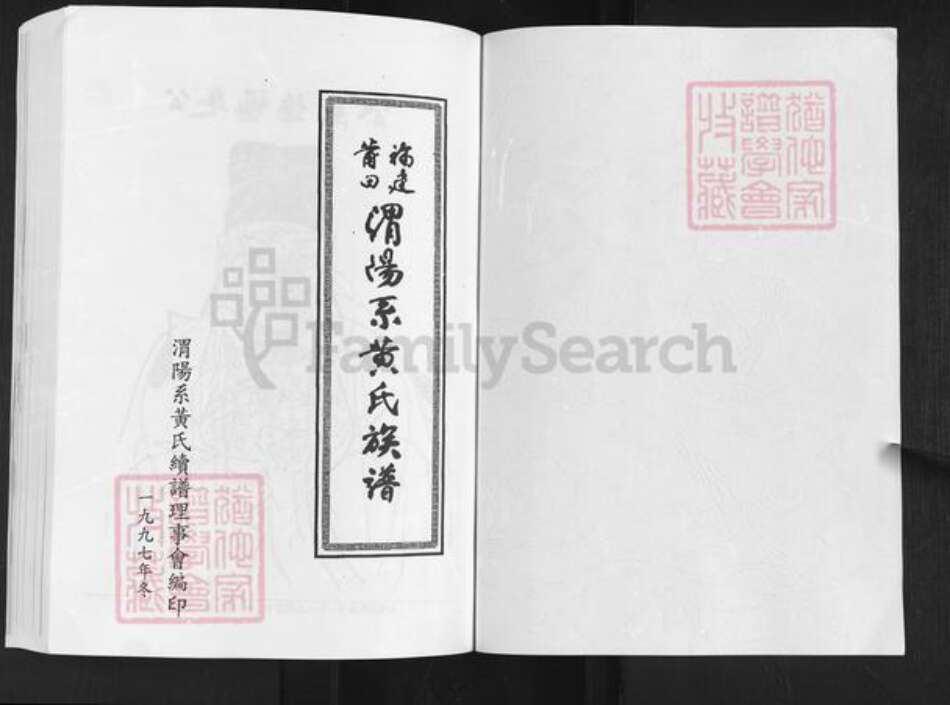 猶他家
譜學會
收藏
福建
莆田
渭陽系黃氏族譜
渭陽系黃氏續譜理事會編印
一九九七年冬
猶他家
譜學會
收藏
FamilySearch